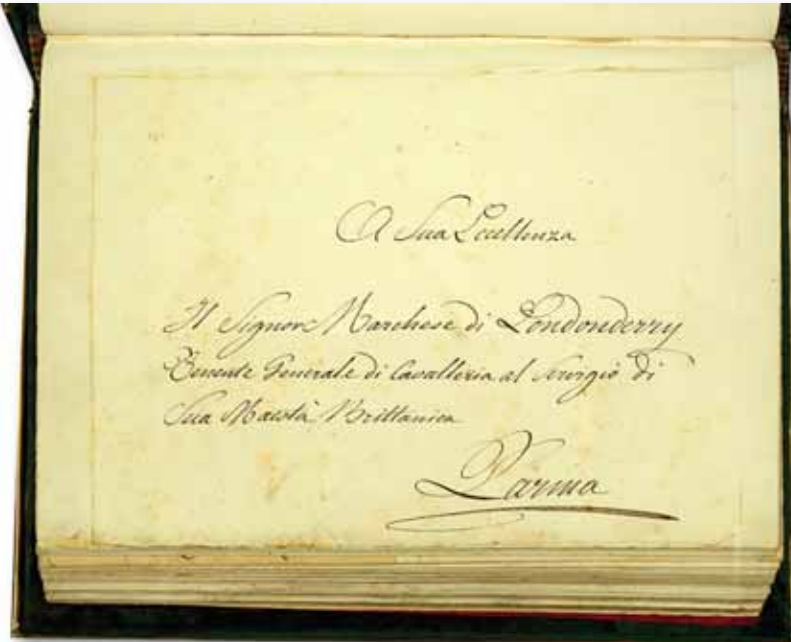 A Sua Eccellenza
Il Signor Marchese di Londonderry
Tenente Generale di Cavalleria al Servigio di
Sua Maestà Brittanica
Parma